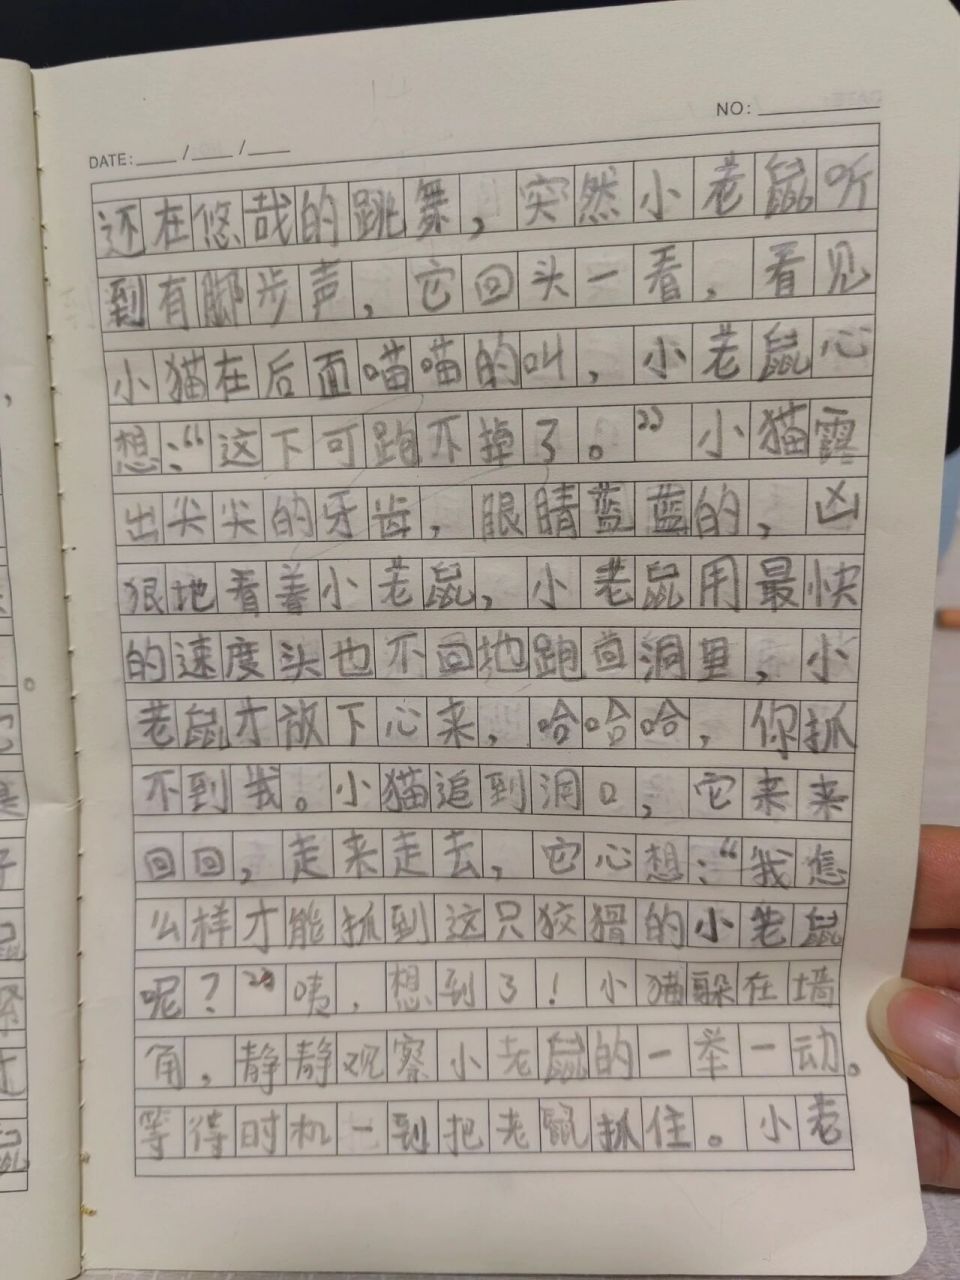 NO:
DATE: / /
还在悠哉的跳舞，突然小老鼠听
到有脚步声，它回头一看，看见
小猫在后面喵喵的叫，小老鼠心
想：“这下可跑不掉了。”小猫露
出尖尖的牙齿，眼睛蓝蓝的，凶
狠地看着小老鼠，小老鼠用最快
的速度头也不回地跑回洞里，小
老鼠才放下心来，哈哈哈，你抓
不到我。小猫追到洞口，它来来
回回，走来走去，它心想：“我怎
么样才能抓到这只狡猾的小老鼠
呢？”咦，想到了！小猫躲在墙
角，静静观察小老鼠的一举一动。
等待时机一到把老鼠抓住。小老